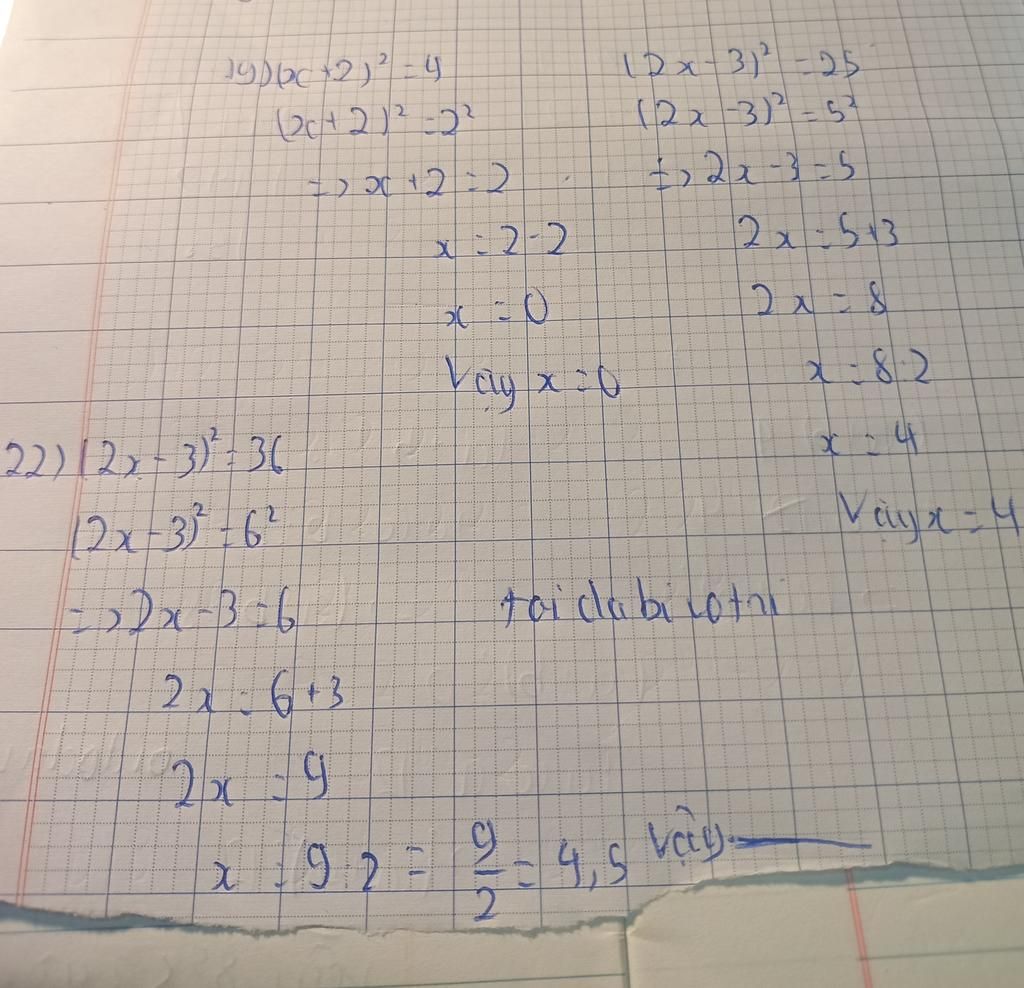 19) (x+2)² = 4
(x+2)² = 2²
=> x+2 = 2
x = 2-2
x = 0
Vậy x = 0
(2x-3)² = 25
(2x-3)² = 5²
=> 2x-3 = 5
2x = 5+3
2x = 8
x = 8:2
x = 4
Vậy x = 4
22) (2x-3)² = 36
(2x-3)² = 6²
=> 2x-3 = 6
2x = 6+3
2x = 9
x = 9:2 = 9/2 = 4,5 Vậy